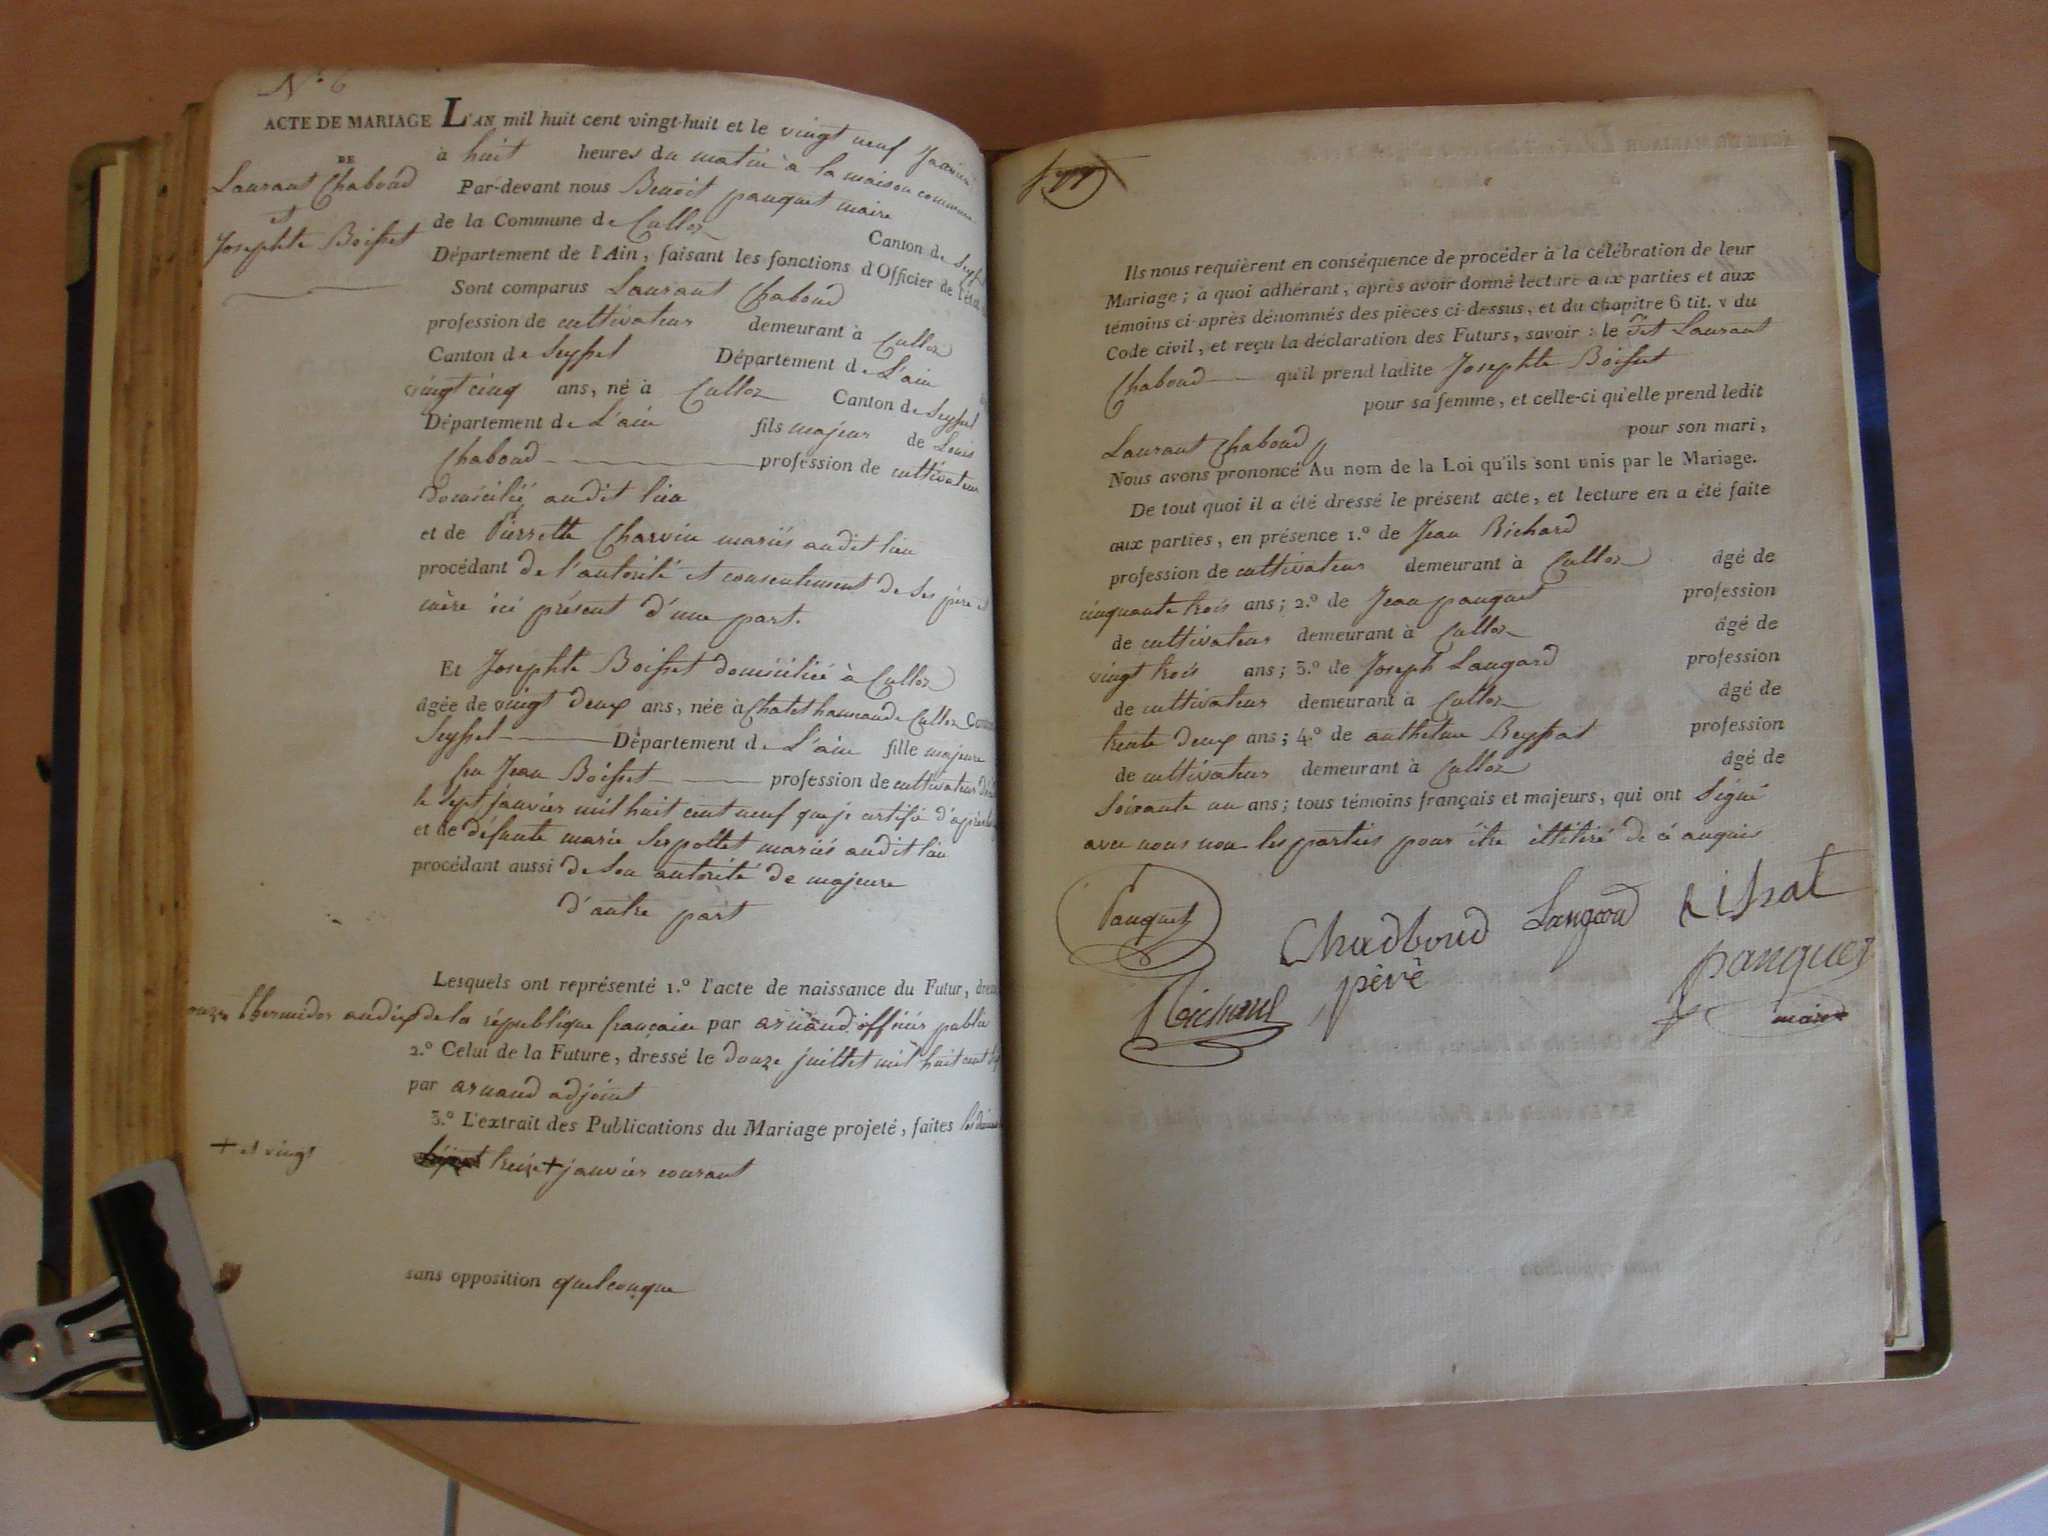 N.° 6
ACTE DE MARIAGE
DE
Laurant Chaboud
et
Josephte Boisset
L'AN mil huit cent vingt-huit et le vingt neuf Janvier
à huit heures du matin à la maison commune
Par-devant nous Benoit pauquet maire
de la Commune de Culloz Canton de Seyssel
Département de l'Ain, faisant les fonctions d'Officier de l'état
Sont comparus Laurant Chaboud
profession de cultivateur demeurant à Culloz
Canton de Seyssel Département de L'ain
vingt cinq ans, né à Culloz Canton de Seyssel
Département de L'ain fils majeur de Louis
Chaboud profession de cultivateur
domicilié audit lieu
et de Pierrette Charvin mariés audit lieu
procédant de l'autorité et consentement de ses père et
mère ici présent d'une part.
Et Josephte Boisset domiciliée à Culloz
âgée de vingt deux ans, née à Culloz Canton
Seyssel Département de L'ain fille majeure
feu Jean Boisset profession de cultivateur
le sept janvier mil huit cent neuf que je certifié
et de défunte marie Serpollet mariés audit lieu
procédant aussi de son autorité de majeure
d'autre part
Lesquels ont représenté 1.° l'acte de naissance du Futur, dressé
onze thermidor an dix de la république française par arnaud officier public
2.° Celui de la Future, dressé le douze juillet mil huit cent
par arnaud adjoint
3.° L'extrait des Publications du Mariage projeté, faites les
treize + janvier courant
+ et vingt
sans opposition quelconque
Ils nous requièrent en conséquence de procéder à la célébration de leur
Mariage ; à quoi adhérant, après avoir donné lecture aux parties et aux
témoins ci-après dénommés des pièces ci-dessus, et du chapitre 6 tit. v du
Code civil, et reçu la déclaration des Futurs, savoir : le dit Laurant
Chaboud qu'il prend ladite Josephte Boisset
pour sa femme, et celle-ci qu'elle prend ledit
Laurant Chaboud pour son mari,
Nous avons prononcé Au nom de la Loi qu'ils sont unis par le Mariage.
De tout quoi il a été dressé le présent acte, et lecture en a été faite
aux parties, en présence 1.° de Jean Richard
profession de cultivateur demeurant à Culloz âgé de
cinquante trois ans ; 2.° de Jean pauquet profession
de cultivateur demeurant à Culloz âgé de
vingt trois ans ; 3.° de Joseph Laugard profession
de cultivateur demeurant à Culloz âgé de
trente deux ans ; 4.° de anthelme Reyssat profession
de cultivateur demeurant à Culloz âgé de
Soixante un ans ; tous témoins français et majeurs, qui ont Signé
avec nous non les parties pour être illitiré de ce anquis
Pauquet Chadboud Langard
pèrè
Richard pauquet
maire